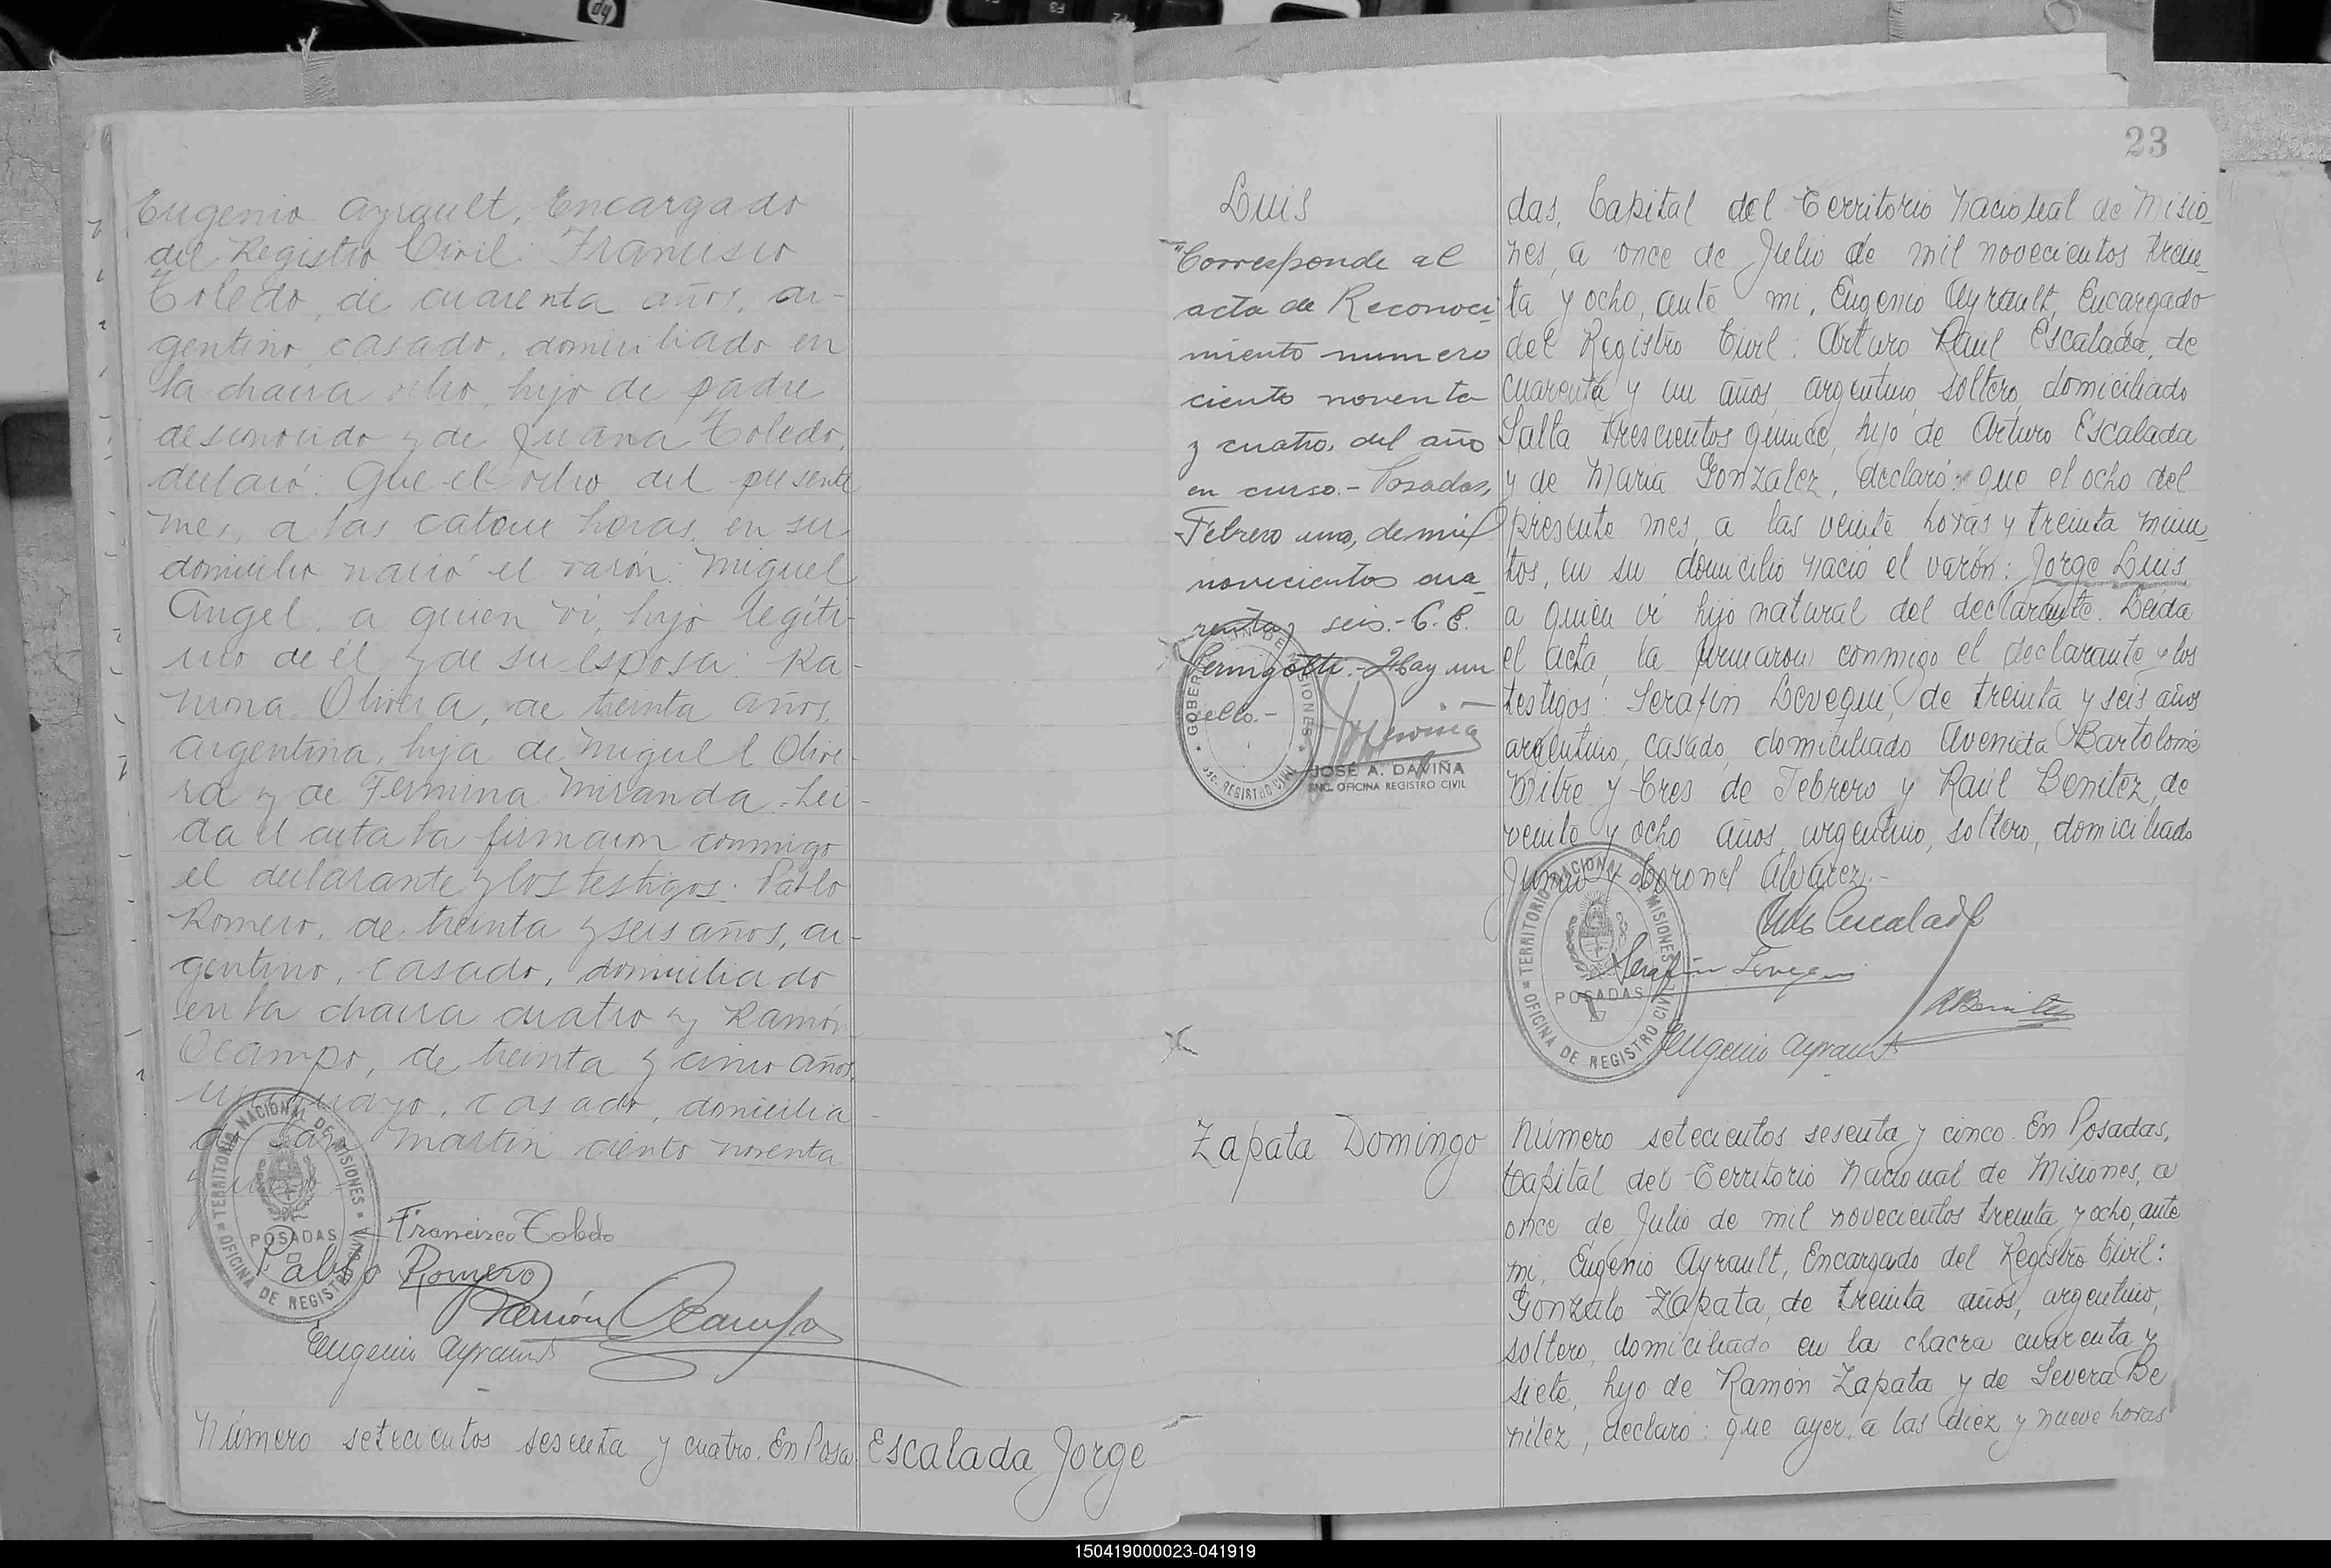 Eugenio Ayrault, Encargado
del Registro Civil: Francisco
Toledo, de cuarenta años, ar-
gentino, casado, domiciliado en
la chacra ocho, hijo de padre
desconocido y de Juana Toledo,
declaró: Que el ocho del presente
mes, a las catorce horas, en su
domicilio nació el varón: Miguel
Angel, a quien ví, hijo legíti-
mo de él y de su esposa: Ra-
mona Olivera, de treinta años,
argentina, hija de Miguel Olive-
ra y de Fermina Miranda. Lei-
da el acta la firmaron conmigo
el declarante y los testigos: Pablo
Romero, de treinta y seis años, ar-
gentino, casado, domiciliado
en la chacra cuatro y Ramón
Ocampo, de treinta y cinco años,
uruguayo, casado, domicilia-
do San Martín ciento noventa
TERRITORIO NACIONAL DE MISIONES
POSADAS
OFICINA DE REGISTRO CIVIL
Francisco Toledo
Pablo Romero
Ramón Ocampo
Eugenio Ayrault
Número setecientos sesenta y cuatro. En Posa
Escalada Jorge
23
Luis
"Corresponde al
acta de Reconoci-
miento numero
ciento noventa
y cuatro, del año
en curso.- Posadas,
Febrero uno, de mil
novecientos cua-
renta y seis.- C. E.
Hay un
sello.-
JOSÉ A. DAVIÑA
ENC. OFICINA REGISTRO CIVIL
das, Capital del Territorio Nacional de Misio-
nes, a once de Julio de mil novecientos trein-
ta y ocho, ante mi, Eugenio Ayrault, Encargado
del Registro Civil: Arturo Raúl Escalada, de
cuarenta y un años, argentino, soltero, domiciliado
Salta trescientos quince, hijo de Arturo Escalada
y de María González, declaró: que el ocho del
presente mes, a las veinte horas y treinta minu-
tos, en su domicilio nació el varón: Jorge Luis
a quien ví hijo natural del declarante. Leida
el acta, la firmaron conmigo el declarante y los
testigos: Serafín Levequi, de treinta y seis años
argentino, casado, domiciliado Avenida Bartolomé
Mitre y Tres de Febrero y Raúl Benítez, de
veinte y ocho años, argentino, soltero, domiciliado
Junín y Coronel Alvarez.-
TERRITORIO NACIONAL DE MISIONES
POSADAS
OFICINA DE REGISTRO CIVIL
Serafín Levequi
R Benitez
Eugenio Ayrault
Zapata Domingo
Número setecientos sesenta y cinco. En Posadas,
Capital del Territorio Nacional de Misiones, a
once de Julio de mil novecientos treinta y ocho, ante
mi, Eugenio Ayrault, Encargado del Registro Civil:
Gonzalo Zapata, de treinta años, argentino,
soltero, domiciliado en la chacra cuarenta y
siete, hijo de Ramón Zapata y de Severa Be
nítez, declaró: que ayer, a las diez y nueve horas
150419000023-041919